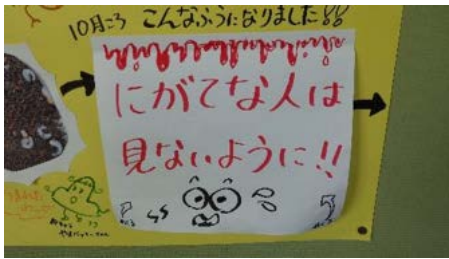 10月ころ こんなふうになりました!!
にがてな人は
見ないように!!